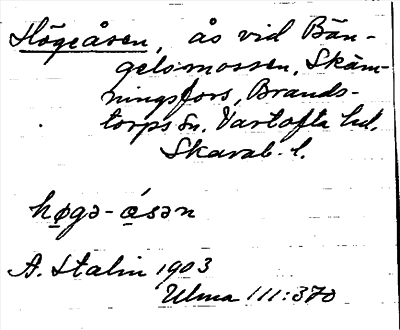 Högeåsen, ås vid Bän-
gelsmossen, Skäm-
ningsfors, Brands-
torps sn. Vartofta hd.
Skarab. l.
høgə-ǻsən
A. Stalin 1903
Ulma 111:370